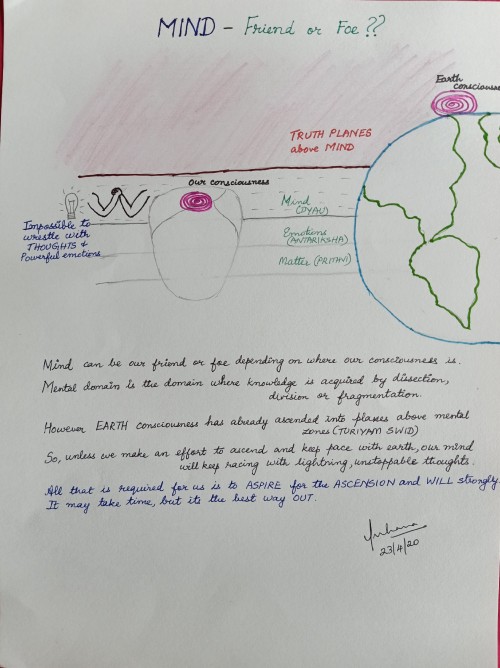 MIND - Friend or Foe??
Earth
consciousness
TRUTH PLANES
above MIND
Our consciousness
Mind
(DYAU)
Impossible to
wrestle with
THOUGHTS &
Powerful emotions
Emotions
(ANTARIKSHA)
Matter (PRITHVI)
Mind can be our friend or foe depending on where our consciousness is.
Mental domain is the domain where knowledge is acquired by dissection,
division or fragmentation.
However EARTH consciousness has already ascended into planes above mental
zones (TURIYAM SWID)
So, unless we make an effort to ascend and keep pace with earth, our mind
will keep racing with lightning, unstoppable thoughts.
All that is required for us is to ASPIRE for the ASCENSION and WILL strongly.
It may take time, but its the best way OUT.
23/4/20